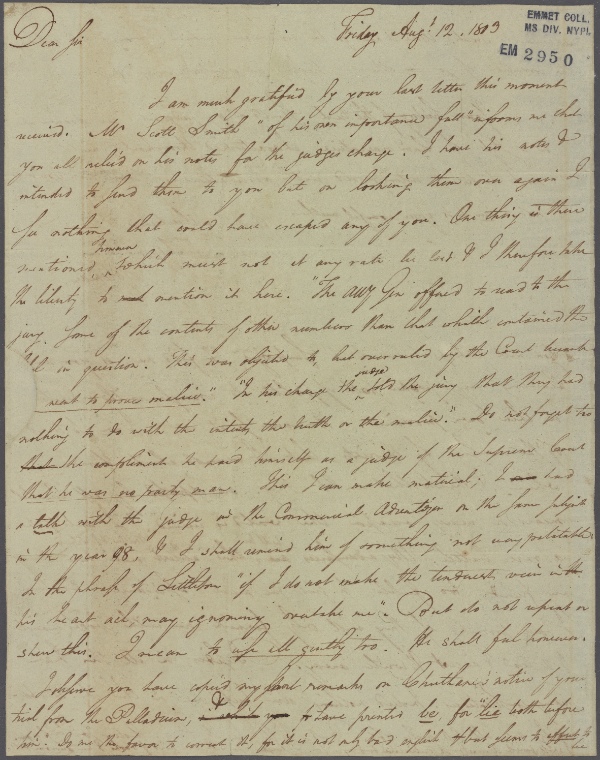 EMMET COLL.
MS DIV. NYPL
EM 2950
Dear Sir
Friday Augt 12. 1803
I am much gratified by your last letter this moment
received. Mr Scott Smith "of his own importance full" informs me that
you all relied on his notes for the judges charge. I have his notes &
intended to send them to you but on looking them over again I
see nothing that could have escaped any of you. One thing is there
mentioned however which must not at any rate be lost & I therefore take
the liberty to mention it here. "The atty Gen offered to read to the
jury some of the contents of other numbers than that which contained the
in question. This was objected to, but overruled by the Court
went to prove malice." "In his charge the judge told the jury that they had
nothing to do with the intent, the truth or the malice." Do not forget too
that the compliment he paid himself as a judge of the Supreme Court
that he was no party man. This I can make material; I had
a talk with the judge in the Commercial Advertiser on the same subject
in the year 98, & I shall remind him of something not very palatable
In the phrase of Littleton "if I do not make the tenderest vein in
his heart ach, may ignominy overtake me". But do not repeat or
shew this. I mean to use all gently too. He shall feel however.
I observe you have copied my short remarks on Cheetham's notice of your
trial from the Palladium, & have printed be for "lie both before
him". Do me the favor to correct it, for it is not only bad english & but seems to
lie